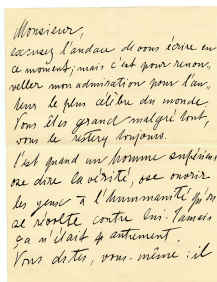 Monsieur,
excusez l'audace de vous écrire en
ce moment; mais c'est pour renou-
veller mon admiration pour l'au-
teur le plus célèbre du monde.
Vous êtes grand malgré tout,
vous le resterez toujours.
C'est quand un homme supérieur
ose dire la vérité, ose ouvrir
les yeux à l'hummanité qu'on
se révolte contre lui. Jamais
ça n'était autrement.
Vous dites, vous-même: il